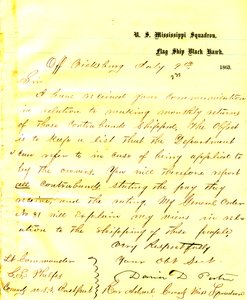 U. S. Mississippi Squadron,
Flag Ship Black Hawk,
Off Vicksburg July 9th 1863.
Sir
I have received your Communication
in relation to making monthly returns
of those Contrabands Shipped. The Object
is to keep a list that the Department
can refer to in case of being applied to
by the owners. You will therefore report
all contrabands stating the pay they
receive, and the rating. My General Order
No. will explain my views in rela-
tion to the shipping of these people.
Very Respectfully
Your Obt Servt.
David D. Porter
Lt Commander
S. L. Phelps
Rear Admiral Comdg Miss. Squadron